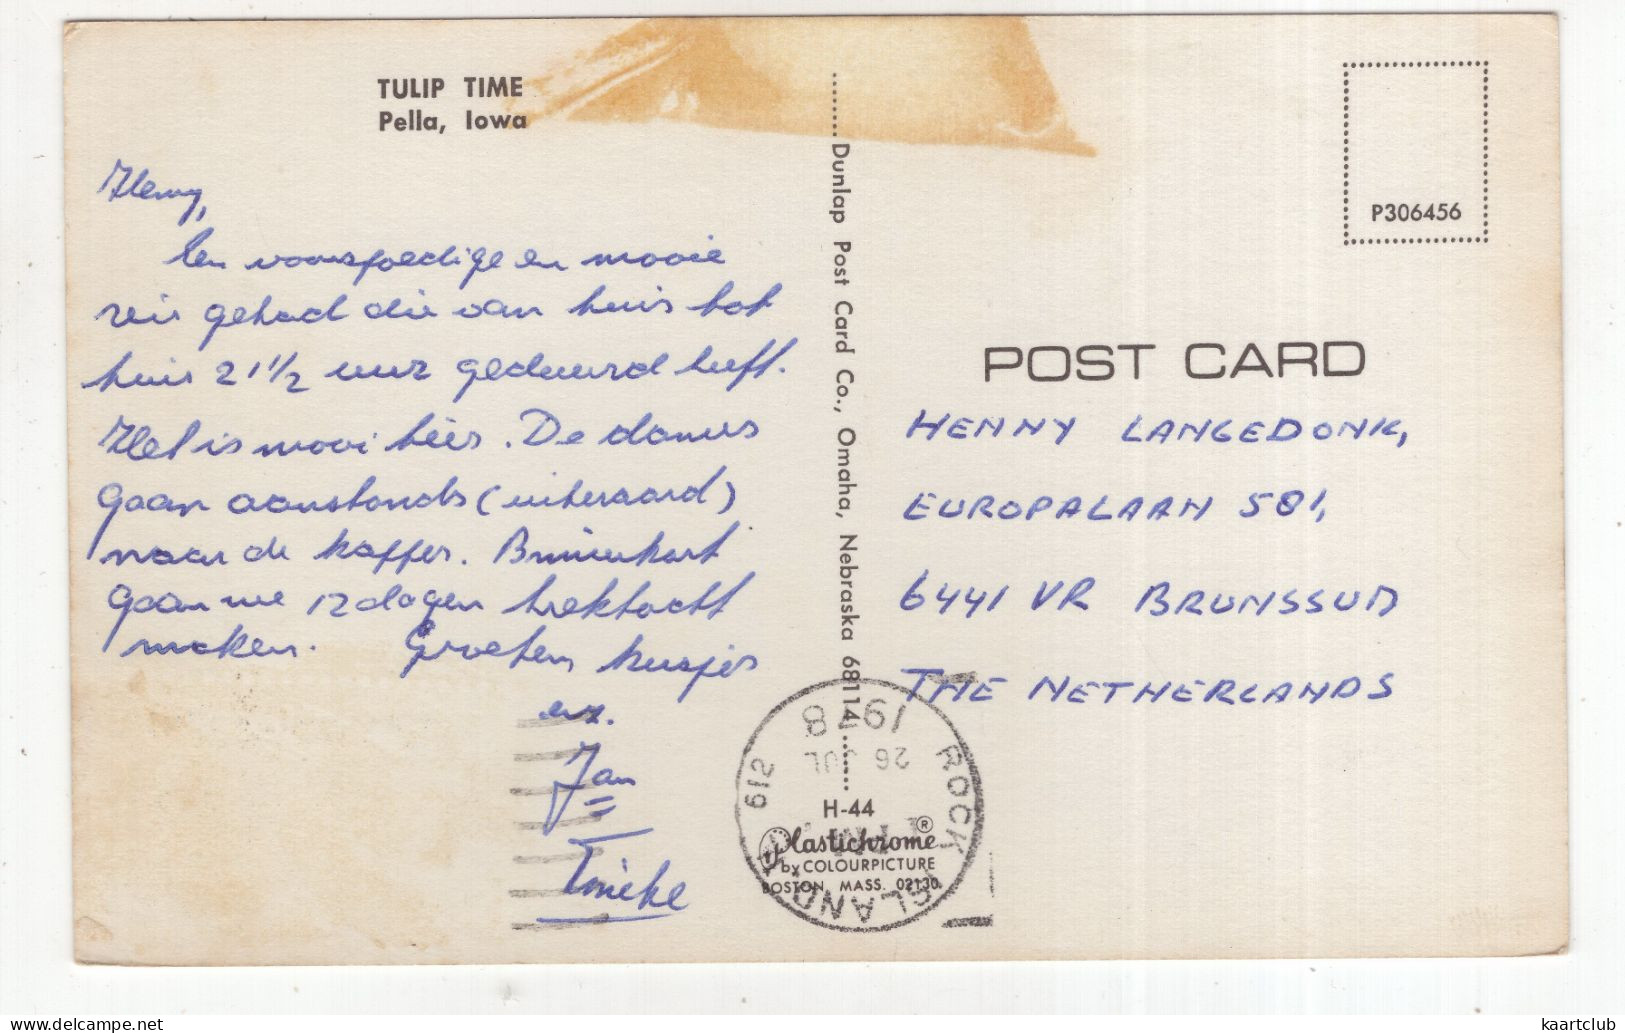 TULIP TIME
Pella, Iowa
Henny,
Een voorspoedige en mooie
reis gehad die van huis tot
huis 21 1/2 uur geduurd heeft.
Het is mooi hier. De dames
gaan aanstonds (uiteraard)
naar de kapper.
gaan we 12 dagen trektocht
maken. Groeten, kusjes
enz.
Jan
Tineke
Dunlap Post Card Co., Omaha, Nebraska 68114
P306456
POST CARD
HENNY LANGEDONK,
EUROPALAAN 581,
6441 VR BRUNSSUM
THE NETHERLANDS
ROCK ISLAND 612
26 JUL
1978
H-44
Plastichrome ®
by COLOURPICTURE
BOSTON, MASS. 02130
kaartclub
delcampe.net